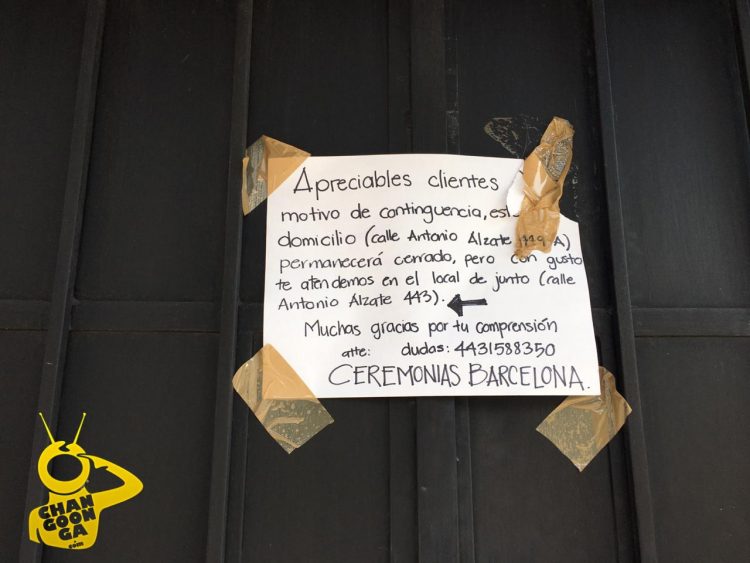 Apreciables clientes
motivo de continguencia, est
domicilio (calle Antonio Alzate A)
permanecerá cerrado, pero con gusto
te atendemos en el local de junto (calle
Antonio Alzate 443).
Muchas gracias por tu comprensión
atte: dudas: 4431588350
CEREMONIAS BARCELONA.
CHAN
GOON
GA
.com